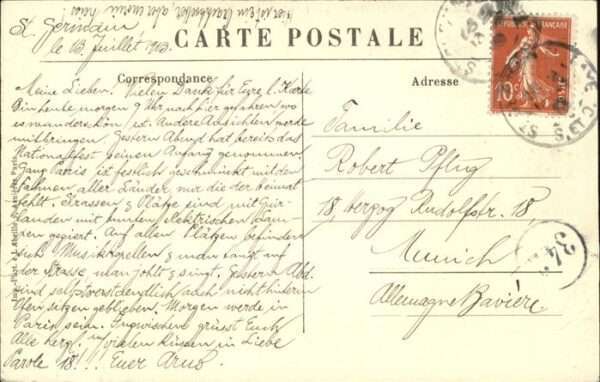 St Germain
le 13 Juillet 1913.
CARTE POSTALE
Correspondance
Adresse
REPUBLIQUE FRANÇAISE
10
Meine Lieben. Vielen Dank für Eure l. Karte
Bin heute morgen 9 Uhr nach hier gefahren wo
es wunderschön ist. Andere Ansichten werde
mitbringen. Gestern Abend hat bereits das
Nationalfest seinen Anfang genommen.
Ganz Paris ist festlich geschmückt mit den
Fahnen aller Länder nur die der Heimat
fehlt. Strassen & Plätze sind mit Guir-
landen mit bunten elektrischen Lam-
pen geziert. Auf allen Plätzen befinden
sich Musikkapellen & man tanzt auf
der Strasse man johlt & singt. Gestern Abd.
sind selbstverstaendlich auch nicht hinterm
Ofen sitzen geblieben. Morgen werde in
Paris sein. Inzwischen grüsst Euch
Alle herzl. vielen Küssen in Liebe
Parole 18!!! Euer
Familie
Robert Pflug
18, Herzog Rudolfstr. 18,
Munich
Allemagne Bavière.
34